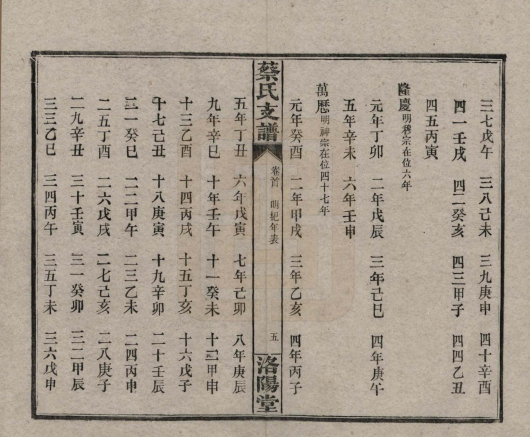 三七戊午 三八己未 三九庚申 四十辛酉
四一壬戌 四二癸亥 四三甲子 四四乙丑
四五丙寅
隆慶明穆宗在位六年
元年丁卯 二年戊辰 三年己巳 四年庚午
五年辛未 六年壬申
萬歷明神宗在位四十七年
元年癸酉 二年甲戌 三年乙亥 四年丙子
蔡氏支譜 卷首 明紀年表 五 洛陽堂
五年丁丑 六年戊寅 七年己卯 八年庚辰
九年辛巳 十年壬午 十一癸未 十二甲申
十三乙酉 十四丙戌 十五丁亥 十六戊子
十七己丑 十八庚寅 十九辛卯 二十壬辰
二一癸巳 二二甲午 二三乙未 二四丙申
二五丁酉 二六戊戌 二七己亥 二八庚子
二九辛丑 三十壬寅 三一癸卯 三二甲辰
三三乙巳 三四丙午 三五丁未 三六戊申